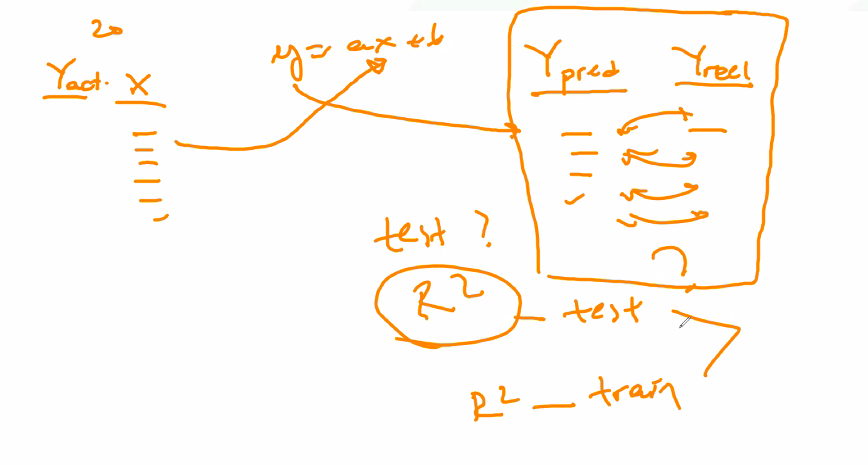 20
Yact. X
y = ax + b
Ypred Yreel
test ?
R² – test
R² – train